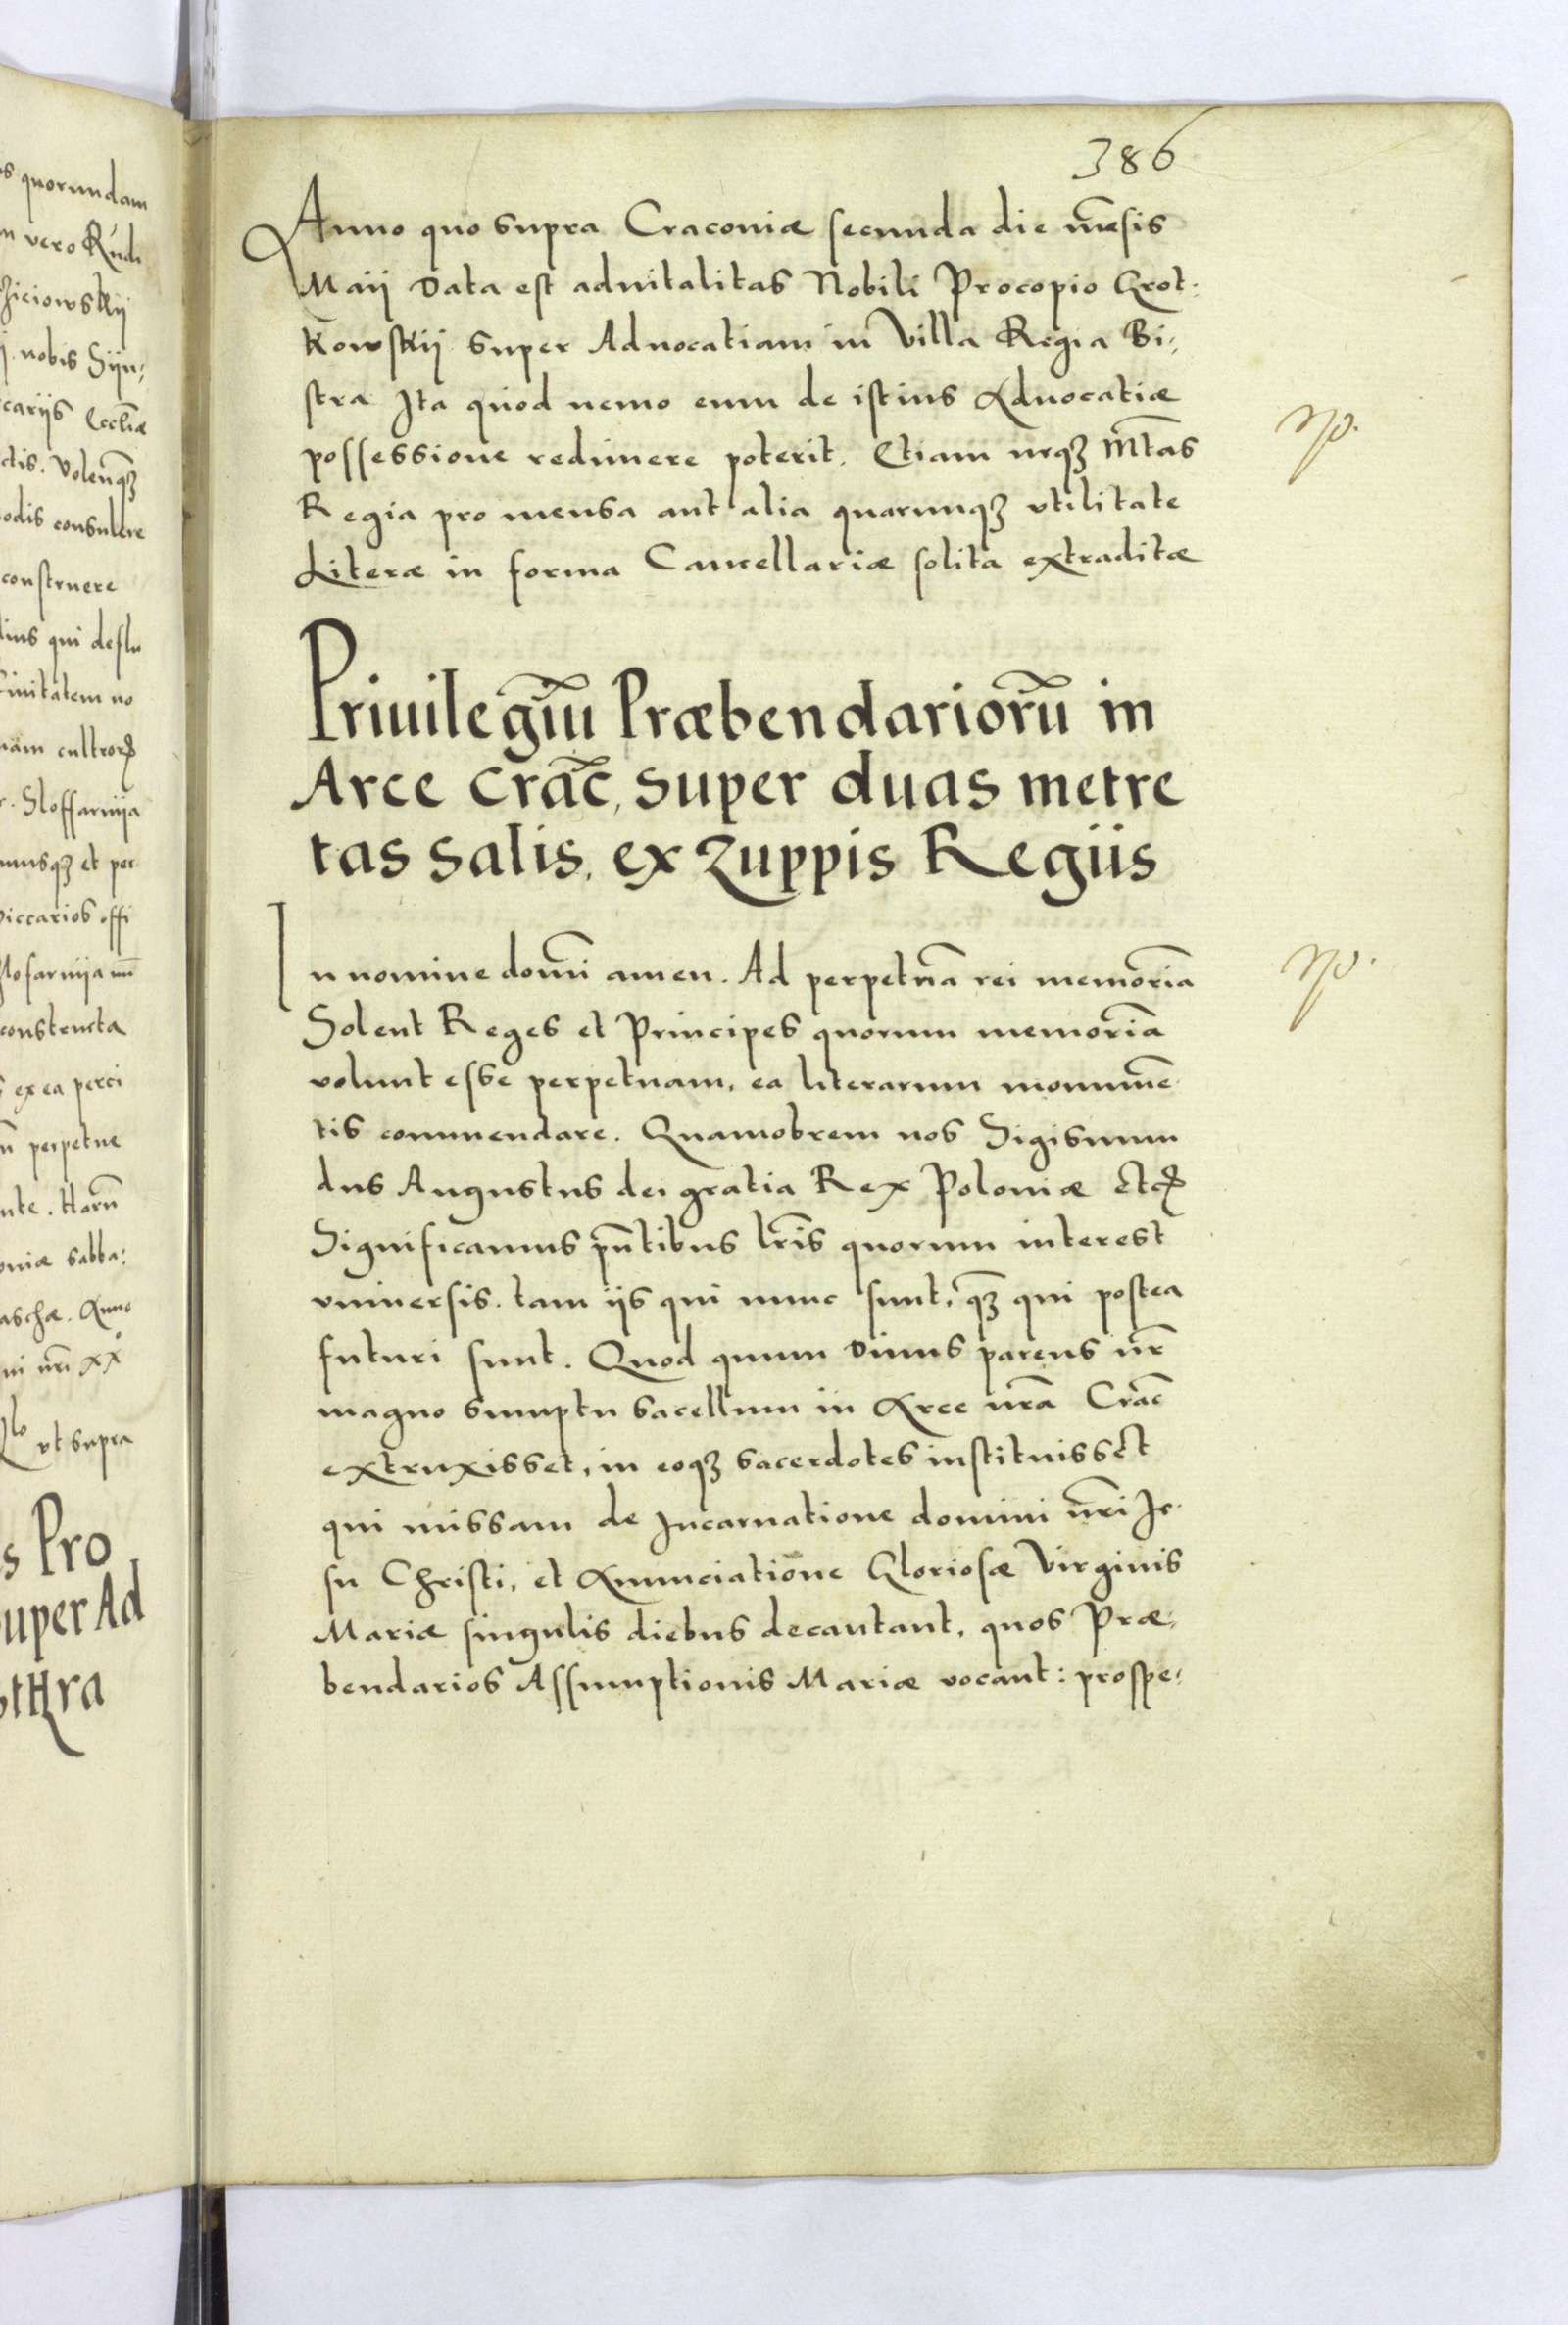 386
Anno quo supra Cracouiæ secunda die mēsis
Maii Data est aduitalitas Nobili Procopio Grot:
Kowskii super Aduocatiam in Villa Regia Bi-
stra Ita quod nemo eum de istius Aduocatiæ
possessione redimere poterit. Etiam neqʒ Mt̄as
Regia pro mensa aut alia quacunqʒ vtilitate
Literæ in forma Cancellariæ solita extraditæ
Priuilegiū Præbendariorū in
Arce crac̄, super duas metre
tas salis, ex zuppis Regiis
In nomine domī amen. Ad perpetuā rei memoriā
Solent Reges et Principes quorum memoriā
volunt esse perpetuam, ea literarum monumē
tis commendare. Quamobrem nos Sigismun
dus Augustus dei gratia Rex Poloniæ etcꝭ
Significamus pn̄tibus lr̄is quorum interest
vniuersis. tam iis qui nunc sunt, qʒ qui postea
futuri sunt. Quod quum Diuus parens nr̄
magno sumptu sacellum in Arce nrā Crac̄
extruxisset, in eoqʒ sacerdotes instituisset
qui missam de Incarnatione domini nr̄i Ie-
su Christi, et Anunciatione Gloriosæ Virginis
Mariæ singulis diebus decantant, quos Præ-
bendarios Assumptionis Mariæ vocant: prospe-
s quorundam
vero Rudi
ziciowskii
nobis Siin-
cariis Eccliæ
ctis. Volenqʒ
odis consulere
construere
qui deflu
cultrorꝭ
Sloffarniia
musqʒ et per
constructa
ex ea perci
perpetue
nte. Harū
oniæ sabba:
aschæ. Anno
ni nr̄i xx
vt supra
s Pro
super Ad